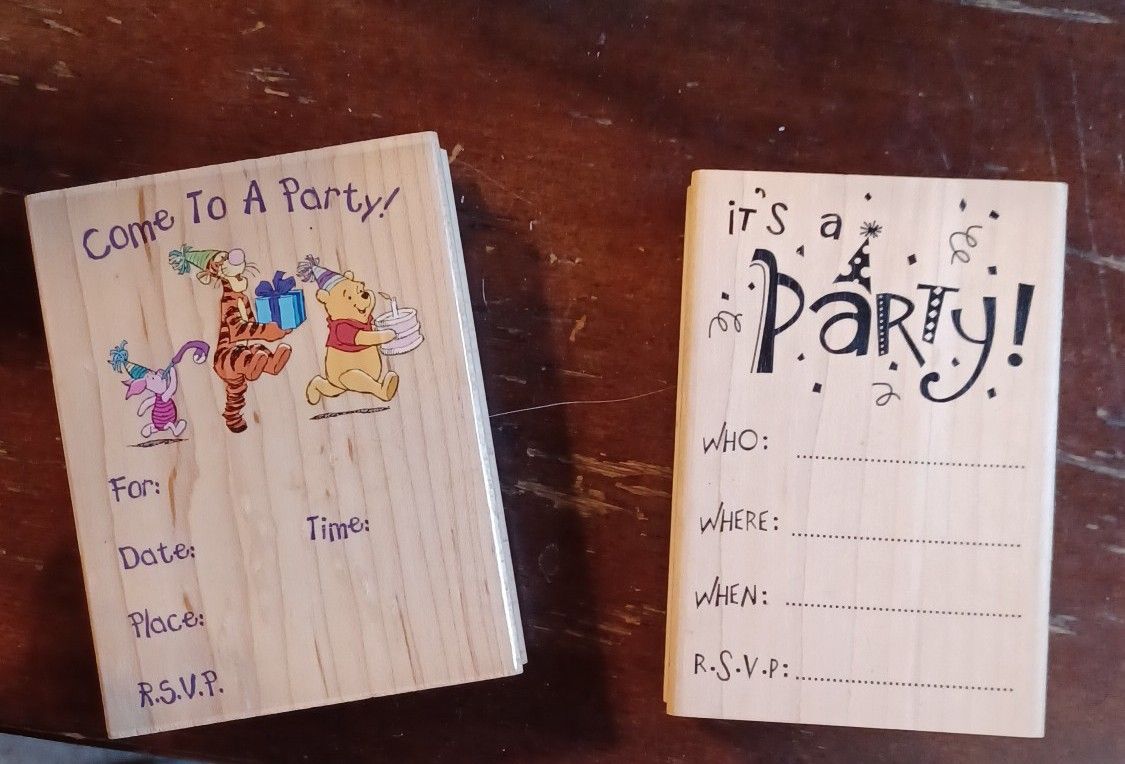 Come To A Party!
For:
Time:
Date:
Place:
R.S.V.P.
iT'S a
PaRTy!
WHO:
WHERE:
WHEN:
R.S.V.P: